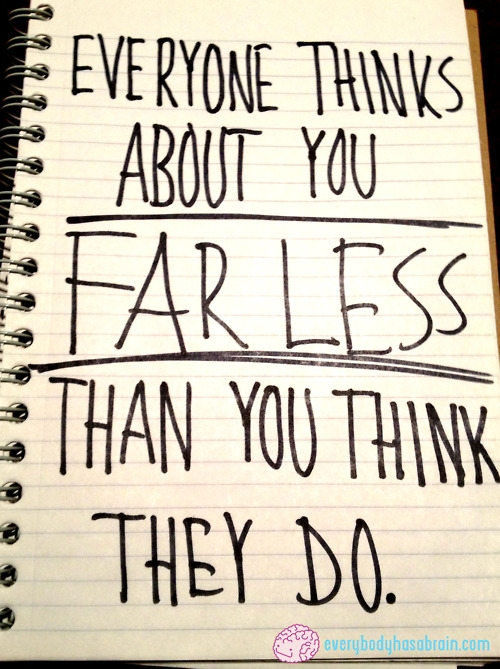 EVERYONE THINKS
ABOUT YOU
FAR LESS
THAN YOU THINK
THEY DO.
everybodyhasabrain.com